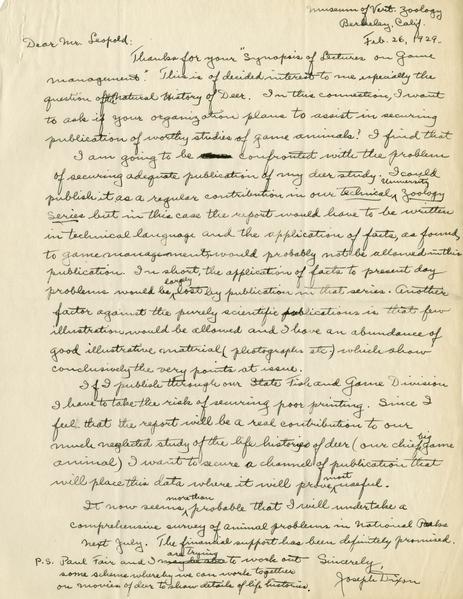 Museum of Vert. Zoology
Berkeley, Calif.
Feb. 26, 1929.
Dear Mr. Leopold:
Thanks for your "Synopsis of Lectures on Game
management." This is of decided interest to me especially the
question of Natural History of Deer. In this connection, I want
to ask if your organization plans to assist in securing
publication of worthy studies of game animals? I find that
I am going to be confronted with the problem
of securing adequate publication of my deer study. I could
publish it as a regular contribution in our technical, University Zoology
Series but in this case the report would have to be written
in technical language and the application of facts, as found,
to game management would probably not be allowed in this
publication. In short, the application of facts to present day
problems would be largely lost by publication in that series. Another
factor against the purely scientific publications is that few
illustration would be allowed and I have an abundance of
good illustrative material (photographs etc.) which show
conclusively the very points at issue.
If I publish through our State Fish and Game Division
I have to take the risk of securing poor printing. Since I
feel that the report will be a real contribution to our
much neglected study of the life histories of deer (our chief big game
animal) I want to secure a channel of publication that
will place this data where it will prove most useful.
It now seems more than probable that I will undertake a
comprehensive survey of animal problems in National Parks
next July. The financial support has been definitely promised.
P.S. Paul Fair and I are trying to work out
some scheme whereby we can work together
on movies of deer to show details of life histories.
Sincerely,
Joseph Dixon